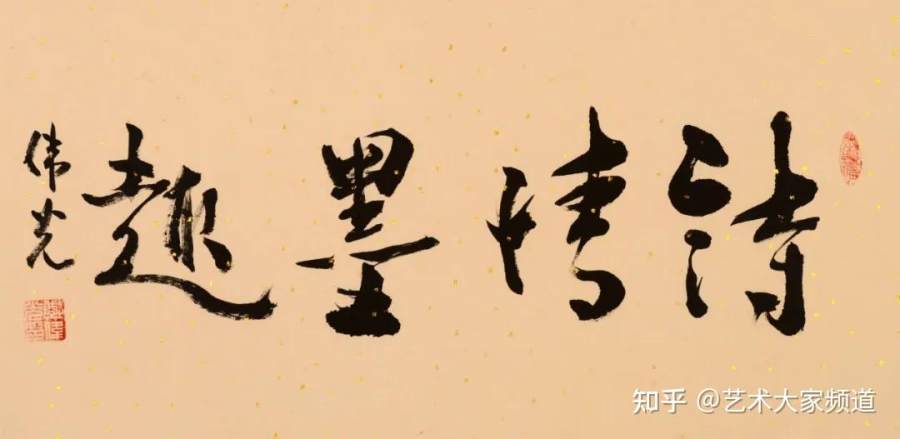 詩情墨趣
伟光
知乎 @艺术大家频道